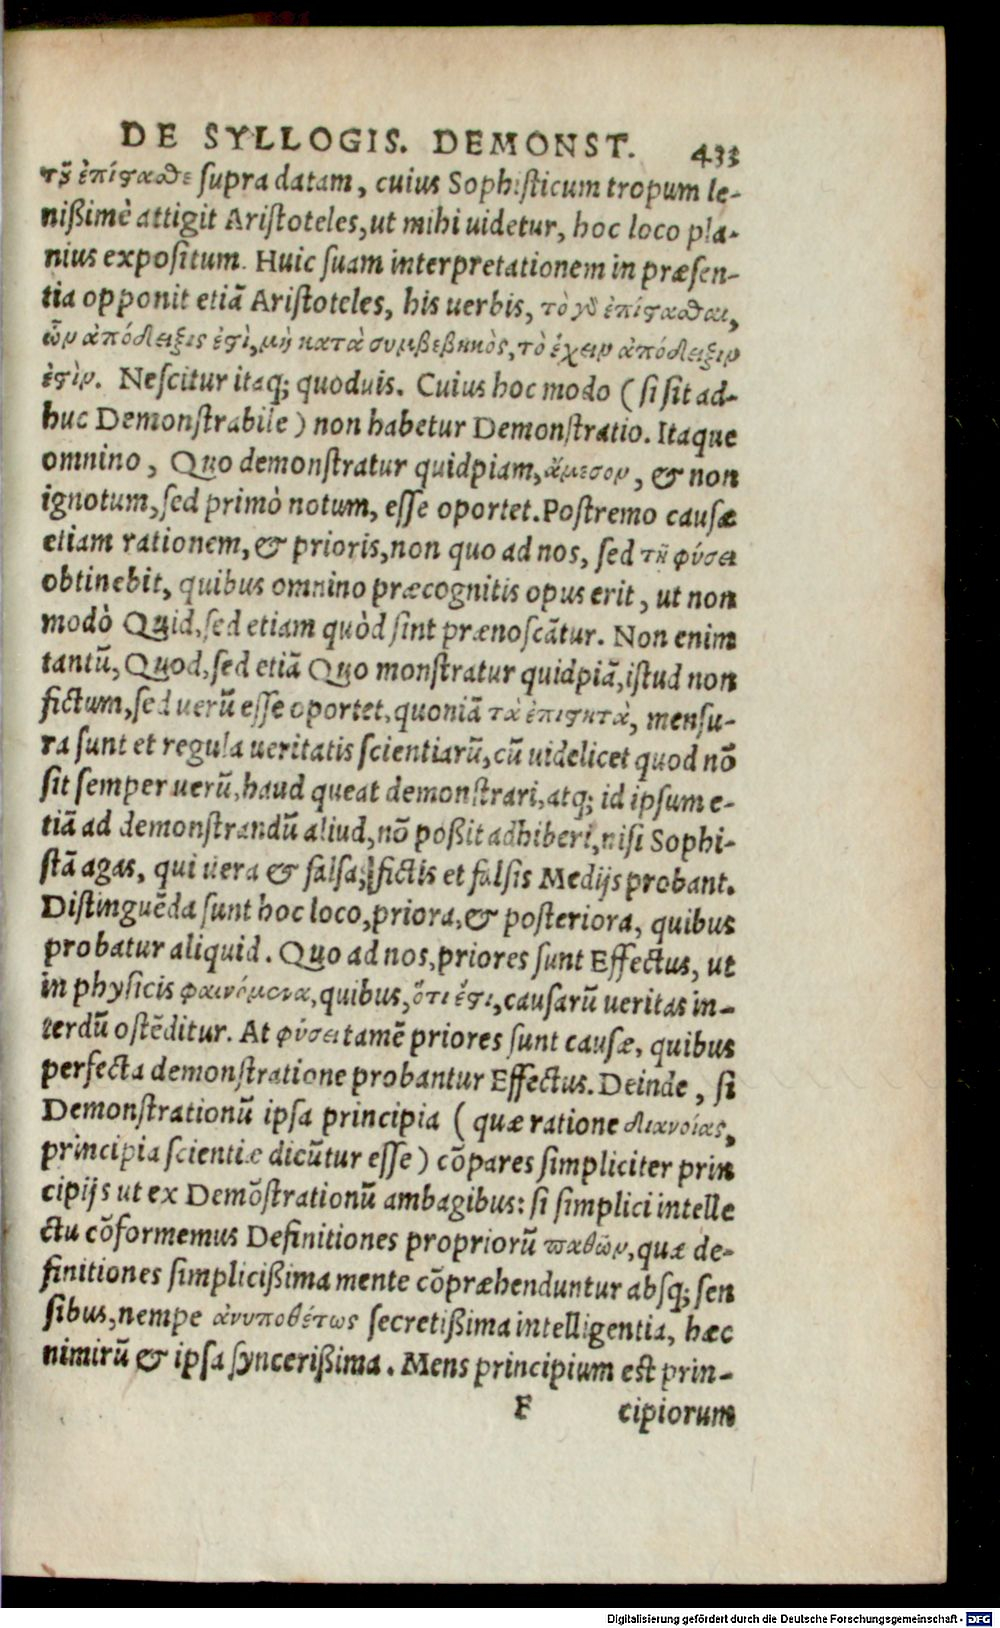 DE SYLLOGIS. DEMONST. 433
τȣ͂ ἐπίϛαϑε supra datam, cuius Sophisticum tropum le-
nißimè attigit Aristoteles, ut mihi uidetur, hoc loco pla-
nius expositum. Huic suam interpretationem in præsen-
tia opponit etiā Aristoteles, his uerbis, τὸ γὸ ἐπίϛαϑαι,
ὧν ἀπόδειξις ἐϛὶ, μὴ κατὰ συμβεβηκὸς, τὸ ἔχειν ἀπόδειξιν
ἐϛὶν. Nescitur itaq; quoduis. Cuius hoc modo (si sit ad-
huc Demonstrabile) non habetur Demonstratio. Itaque
omnino, Quo demonstratur quidpiam, ἄμεσον, & non
ignotum, sed primò notum, esse oportet. Postremo causæ
etiam rationem, & prioris, non quo ad nos, sed τῇ φύσει
obtinebit, quibus omnino præcognitis opus erit, ut non
modò Quid, sed etiam quòd sint prænoscātur. Non enim
tantũ, Quod, sed etiā Quo monstratur quidpiā, istud non
fictum, sed uerũ esse oportet, quoniā τὰ ἐπιϛητὰ, mensu-
ra sunt et regula ueritatis scientiarũ, cũ uidelicet quod nō
sit semper uerũ, haud queat demonstrari, atq; id ipsum e-
tiā ad demonstrandũ aliud, nō poßit adhiberi, nisi Sophi-
stā agas, qui uera & falsa, fictis et falsis Medijs probant.
Distinguēda sunt hoc loco, priora, & posteriora, quibus
probatur aliquid. Quo ad nos, priores sunt Effectus, ut
in physicis φαινόμενα, quibus, ὅτι ἔϛι, causarũ ueritas in-
terdũ ostēditur. At φύσει tamē priores sunt causæ, quibus
perfecta demonstratione probantur Effectus. Deinde, si
Demonstrationũ ipsa principia (quæ ratione διανοίας,
principia scientiæ dicũtur esse) cōpares simpliciter prin
cipijs ut ex Demōstrationũ ambagibus: si simplici intelle
ctu cōformemus Definitiones propriorũ παθῶν, quæ de-
finitiones simplicißima mente cōpræhenduntur absq; sen
sibus, nempe ἀνυποθέτως secretißima intelligentia, hæc
nimirũ & ipsa syncerißima. Mens principium est prin-
F cipiorum
Digitalisierung gefördert durch die Deutsche Forschungsgemeinschaft - DFG